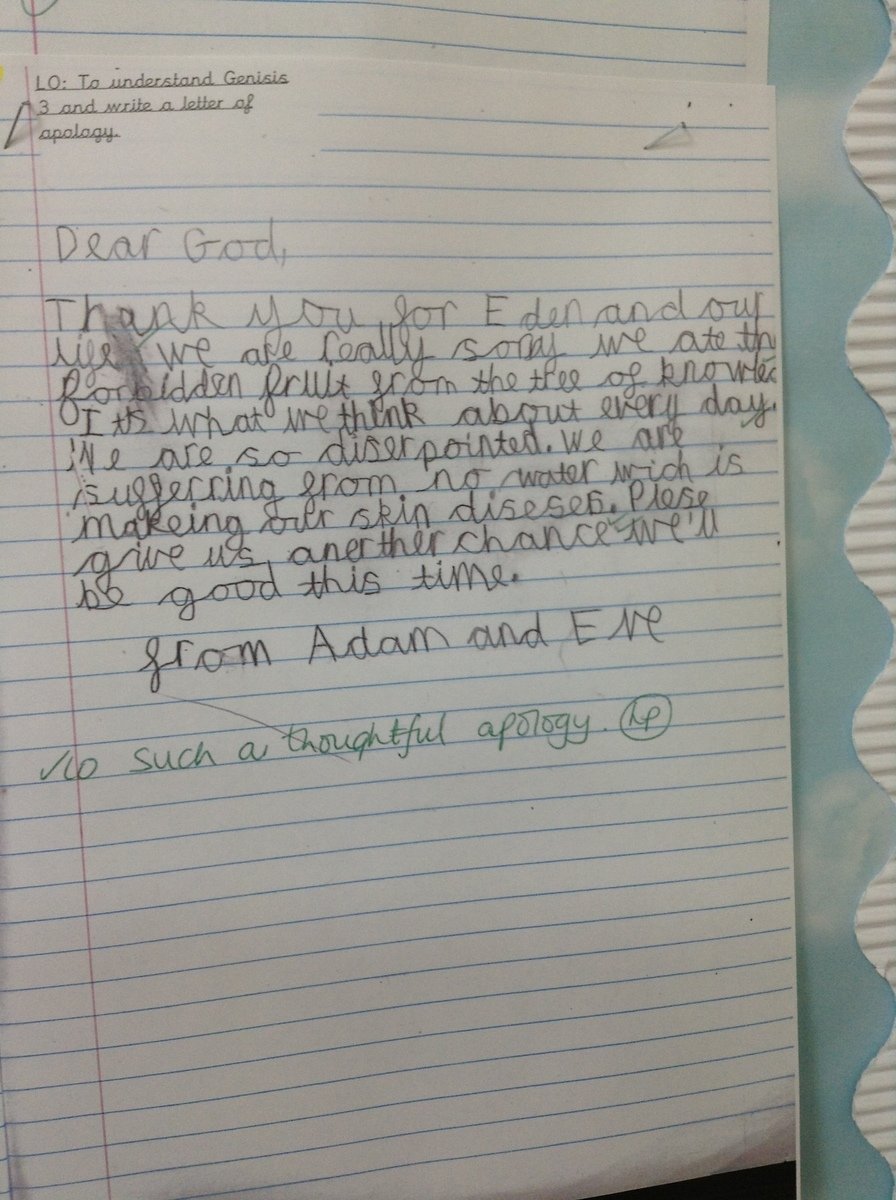 LO: To understand Genisis
3 and write a letter of
apology.
Dear God,
Thank you for Eden and our
life we are really sorry we ate th
forbidden fruit from the tree of knowlec
It's what we think about every day.
We are so diserpointed. We are
suggerring from no water wich is
makeing our skin diseses. Plese
give us anerther chance we'll
be good this time.
from Adam and Eve
such a thoughtful apology.